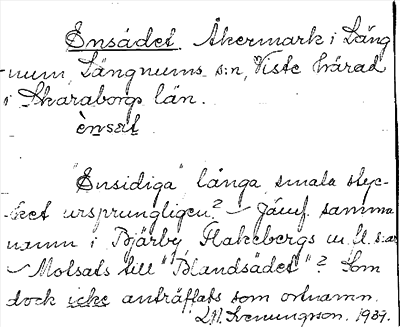 Ensädet Åkermark i Läng
num, Längnums s:n, Viste härad
i Skaraborgs län.
ènsät
"Ensidiga" långa smala styc-
ket ursprungligen? - Jämf. samma
namn i Bjärby, Flakebergs m. fl. s:ar
- Motsats till "Blandsädet"? Som
dock icke anträffats som ortnamn.
Svenungson. 1931.